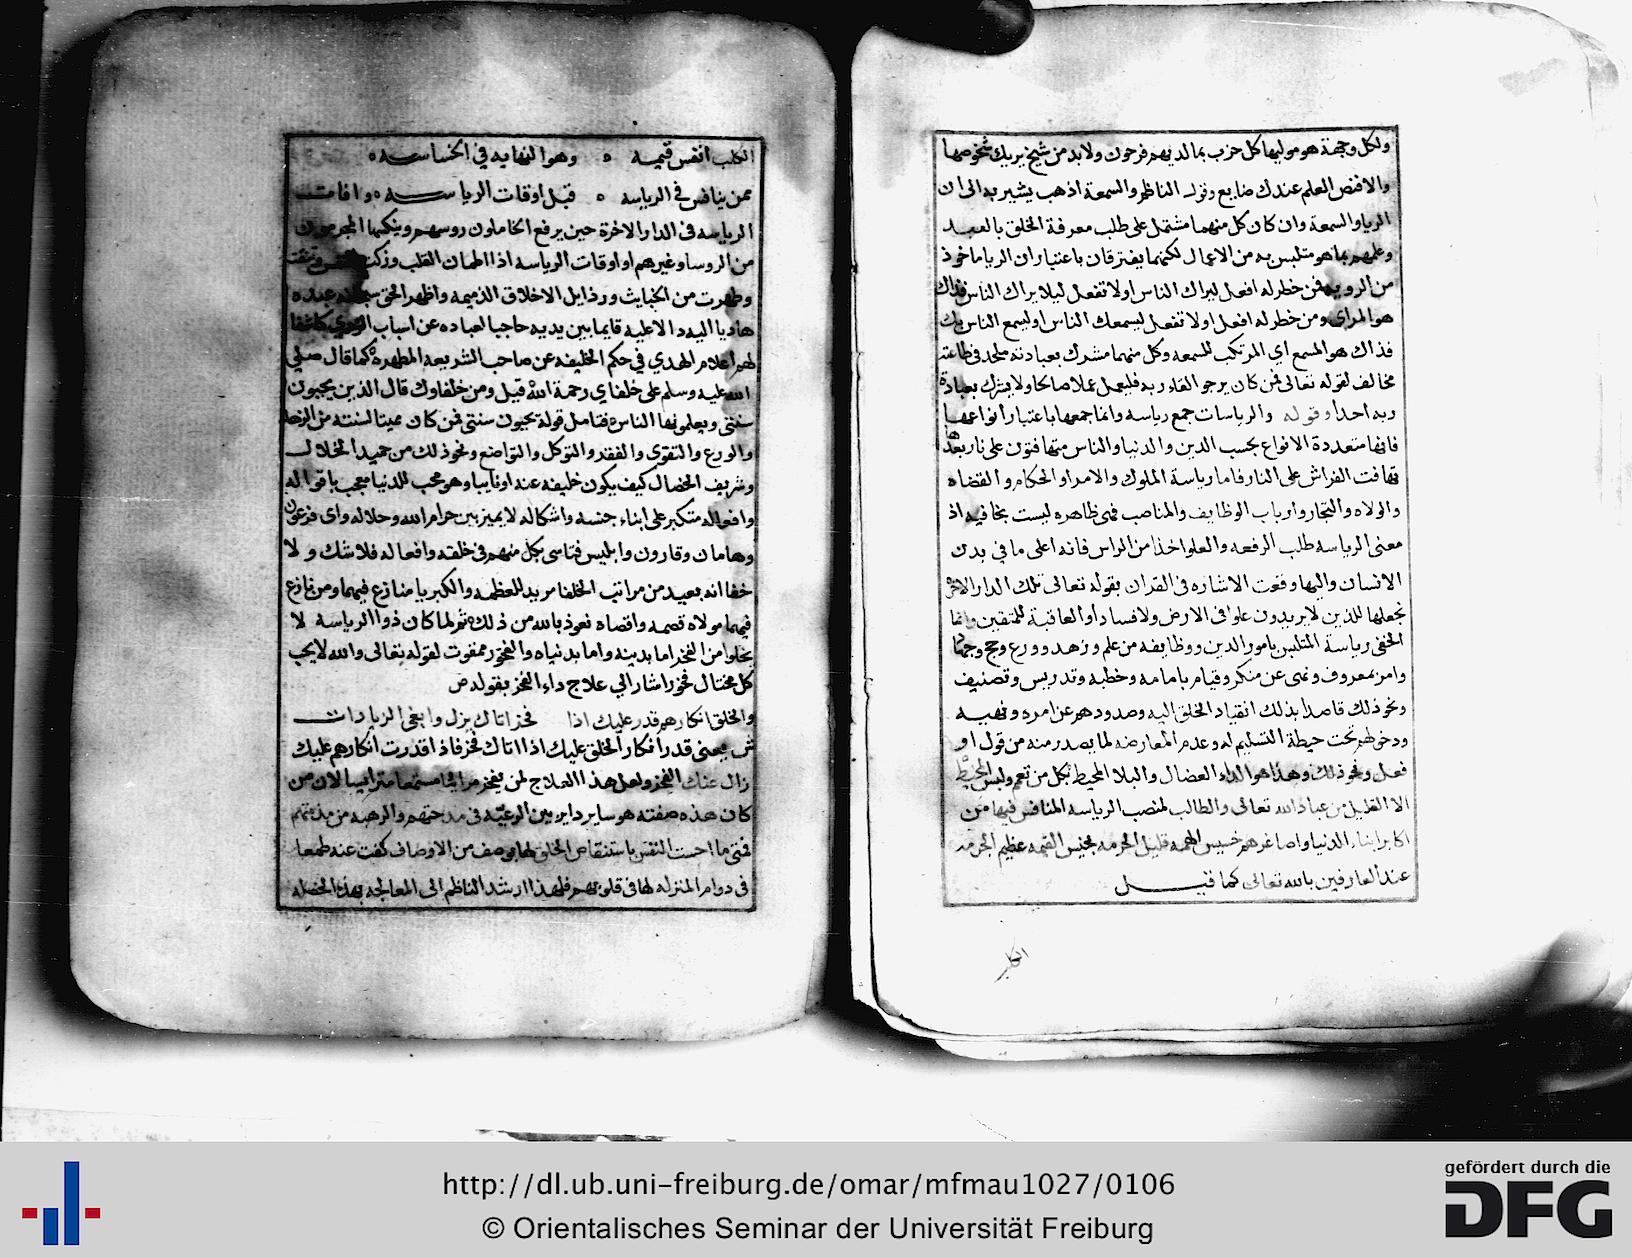 ولكل وجهة هو موليها كل حزب بما لديهم فرحون ولابد من شيخ يريك شخوصها
والا فنص العلم عندك ضايع وترك الناظم والسمعة اذهب يشير به الى ان
الريا والسمعة وان كان كل منهما مشتمل على طلب معرفة الخلق بالعبد
وعلمهم بما هو متلبس به من الاعمال لكنهما يفترقان باعتبار ان الريا ماخوذ
من الرويه فمن خطر له افعل ليراك الناس او لا تفعل ليلا يراك الناس فذاك
هو المراى ومن خطر له افعل او لا تفعل ليسمعك الناس او ليسمع الناس بك
فذاك هو المسمع اي المرتكب للسمعه وكل منهما مشرك بعبادته ملحد في طاعته
مخالف لقوله تعالى فمن كان يرجو القاء ربه فليعمل عملا صالحا ولا يشرك بعبادة
ربه احدا وقوله والرياسات جمع رياسه وانما جمعها باعتبار انواعها
فانها متعددة الانواع بحسب الدين والدنيا والناس متهافتون على نار بعدها
تهافت الفراش على النار فاما رياسة الملوك والامرا والحكام والقضاه
والولاه والتجار وارباب الوظايف والمناصب فهى ظاهره ليست بخافيه اذ
معنى الرياسه طلب الرفعه والعلو اخذا من الراس فانه اعلى ما في بدن
الانسان واليها وقعت الاشاره فى القران بقوله تعالى تلك الدار الاخرة
نجعلها للذين لا يريدون علوا فى الارض ولا فسادا والعاقبة للمتقين وانما
الخفى رياسة المتلبس بامور الدين ووظايفه من علم وزهد وورع وحج وجهاد
وامر بمعروف ونهى عن منكر وقيام بامامه وخطبه وتدريس وتصنيف
ونحو ذلك قاصدا بذلك انقياد الخلق اليه وصدودهم عن امره ونهيه
ودخولهم تحت حيطة التسليم له وعدم المعارضه لما يصدر منه من قول او
فعل ونحو ذلك وهذا هو الداء العضال والبلا المحيط بكل من تعمم ولبس المخيط
الا القليل من عباد الله تعالى والطالب لمنصب الرياسه المنافس فيها من
اكابر ابناء الدنيا واصاغرهم خسيس الهمه قليل الحرمه بخيس القيمه عظيم الجرمه
عند العارفين بالله تعالى كما قيل
الكلب
الكلب انفس قيمه وهو النهايه في الخساسه
ممن ينافس في الرياسه قبل اوقات الرياسه وافات
الرياسه فى الدار الاخرة حين يرفع الخاملون روسهم وينكسها المجرمون
من الروسا وغيرهم او اوقات الرياسه اذا اطمان القلب وزكت النفس وترقت
وطهرت من الخبايث ورذايل الاخلاق الذميمه واظهر الحق سبحانه عبده
هاديا اليه دالا عليه قايما بين يديه حاجبا لعباده عن اسباب الردي كاشفا
لهم اعلام الهدي في حكم الخليفه عن صاحب الشريعه المطهرة كما قال صلي
الله عليه وسلم على خلفاي رحمة الله قيل ومن خلفاوك قال الذين يحيون
سنتى ويعلمونها الناس فتامل قوله يحيون سنتى فمن كان مميتا لسنته من الزهد
والورع والتقوى والفقر والتوكل والتواضع ونحو ذلك من حميد الخلال
وشريف الخصال كيف يكون خليفه عنه او نايبا وهو محب للدنيا معجب باقواله
وافعاله متكبر على ابناء جنسه واشكاله لا يميز بين حرام الله وحلاله واى فرعون
وهامان وقارون وابليس فتاسى بكل منهم فى خلقه وافعاله فلا شك ولا
خفا انه بعيد من مراتب الخلفا مريد للعظمه والكبريا منازع فيهما ومن نازع
فيهما مولاه قصمه واقصاه نعوذ بالله من ذلك ثم لما كان ذوا الرياسه لا
يخلوا من الفخر اما بدينه واما بدنياه والفخور ممقوت لقوله تعالى والله لا يحب
كل مختال فخور اشار الي علاج داء الفخر بقوله ص
والخلق انكارهم قدر عليك اذا فخر اتاك يزل وابغى الزيادات
ش يعنى قدر انكار الخلق عليك اذا اتاك فخر فاذا قدرت انكارهم عليك
زال عنك الفخر ولعل هذا العلاج لمن يفخر مرائيا مستمعا مترايسا لان من
كان هذه صفته هو ساير داير بين الرعيه فى مدحتهم والرهبه من مذمتهم
فمتى ما احست النفس باستنقاص الخلق لها بوصف من الاوصاف كفت عنه طمعا
فى دوام المنزله لها فى قلوبهم فلهذا ارشد الناظم الى المعالجه بهذه الخصله
http://dl.ub.uni-freiburg.de/omar/mfmau1027/0106
© Orientalisches Seminar der Universität Freiburg
gefördert durch die
DFG